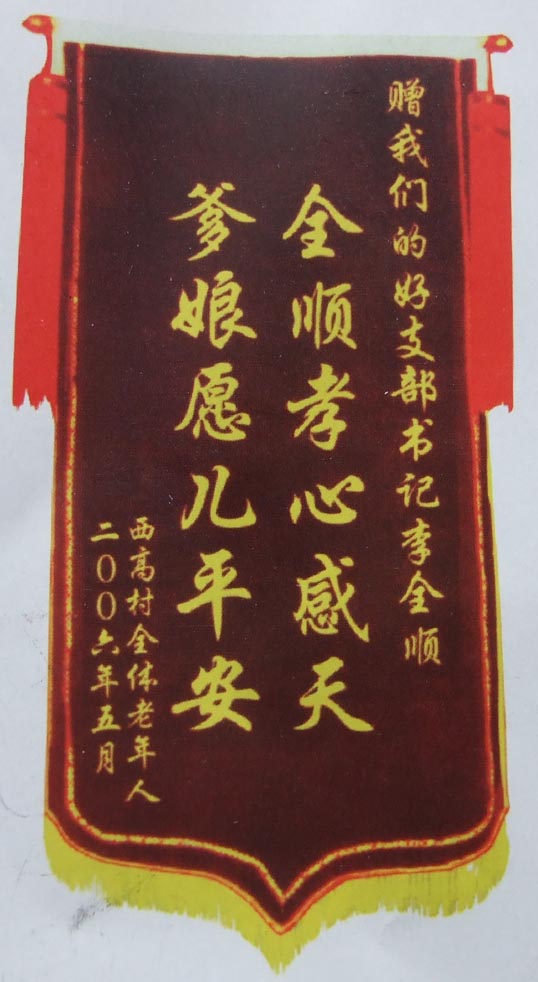 赠我们的好支部书记李全顺
全顺孝心感天
爹娘愿儿平安
西高村全体老年人
二〇〇六年五月